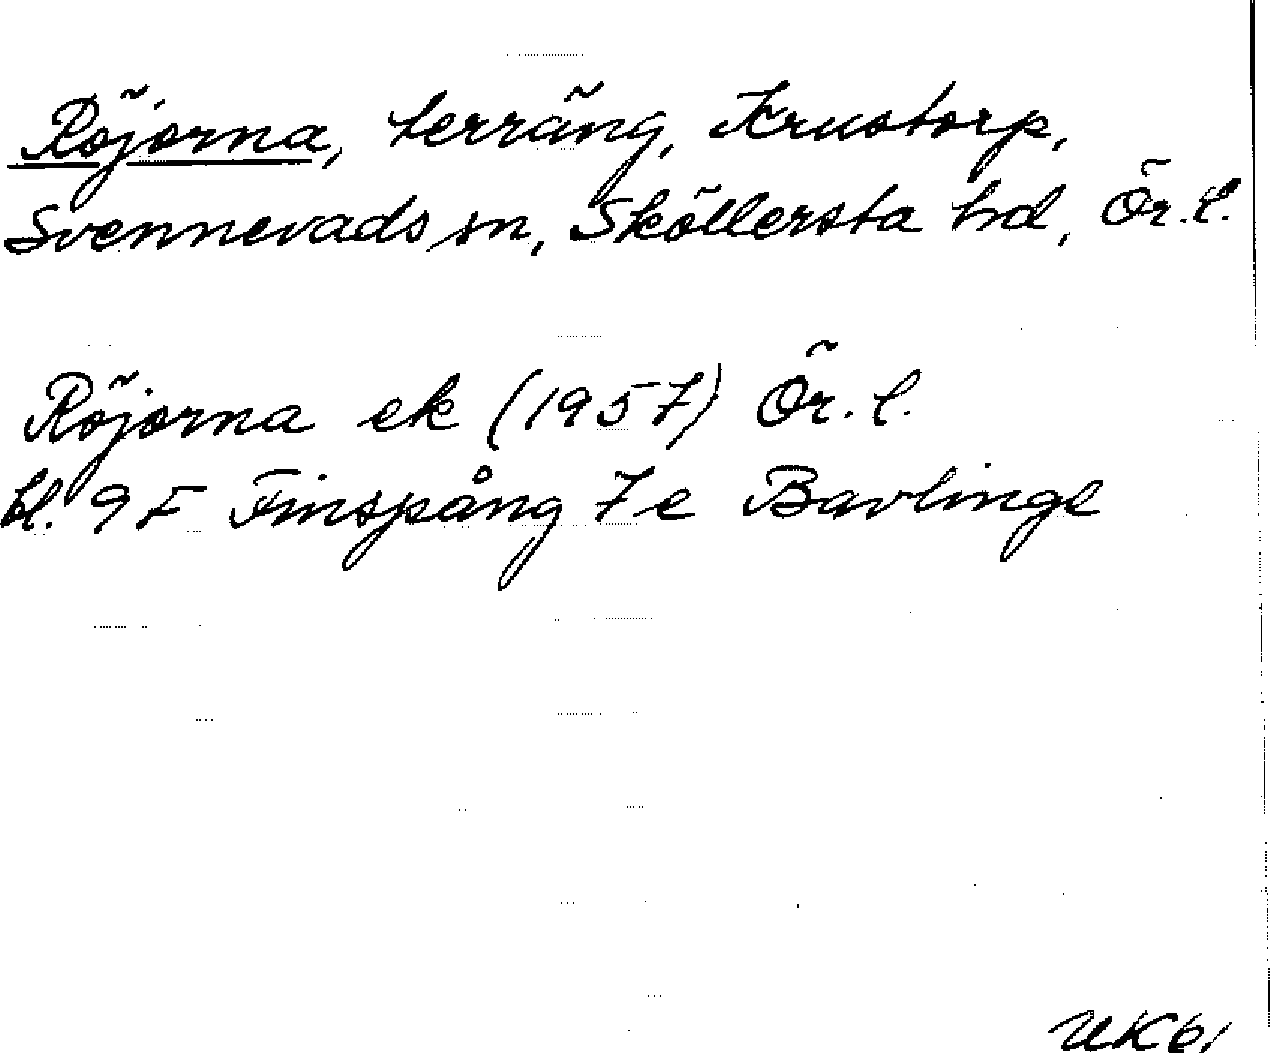 Röjorna, terräng, Krustorp,
Svennevads sn, Sköllersta hd, Ör.l.
Röjorna ek (1957) Ör.l.
bl. 9F Finspång 7e Bavlinge
UK61